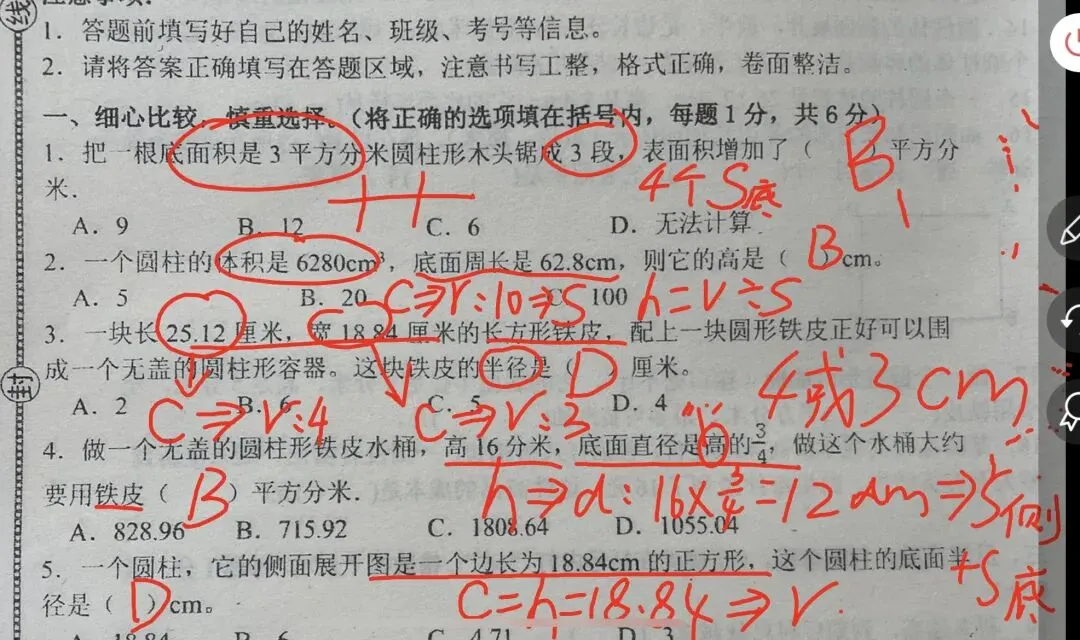 线
注意事项:
1. 答题前填写好自己的姓名、班级、考号等信息。
2. 请将答案正确填写在答题区域，注意书写工整，格式正确，卷面整洁。
一、细心比较，慎重选择。（将正确的选项填在括号内，每题1分，共6分）
1. 把一根底面积是3平方分米圆柱形木头锯成3段，表面积增加了（ B ）平方分
米.
4个S底
A. 9 B. 12 C. 6 D. 无法计算
2. 一个圆柱的体积是6280cm³，底面周长是62.8cm，则它的高是（ B ）cm。
A. 5 B. 20 C. 100
C⇒r:10⇒S h=V÷S
3. 一块长25.12厘米，宽18.84厘米的长方形铁皮，配上一块圆形铁皮正好可以围
成一个无盖的圆柱形容器。这块铁皮的半径是（ D ）厘米。
A. 2 B. 6 C. 5 D. 4
C⇒r:4 C⇒r:3 4或3cm
4. 做一个无盖的圆柱形铁皮水桶，高16分米，底面直径是高的3/4，做这个水桶大约
16
要用铁皮（ B ）平方分米.
h⇒d:16×3/4=12dm⇒S侧
+S底
A. 828.96 B. 715.92 C. 1808.64 D. 1055.04
5. 一个圆柱，它的侧面展开图是一个边长为18.84cm的正方形，这个圆柱的底面半
径是（ D ）cm。
C=h=18.84⇒r.
A. 18.84 B. 6 C. 4.71 D. 3
封